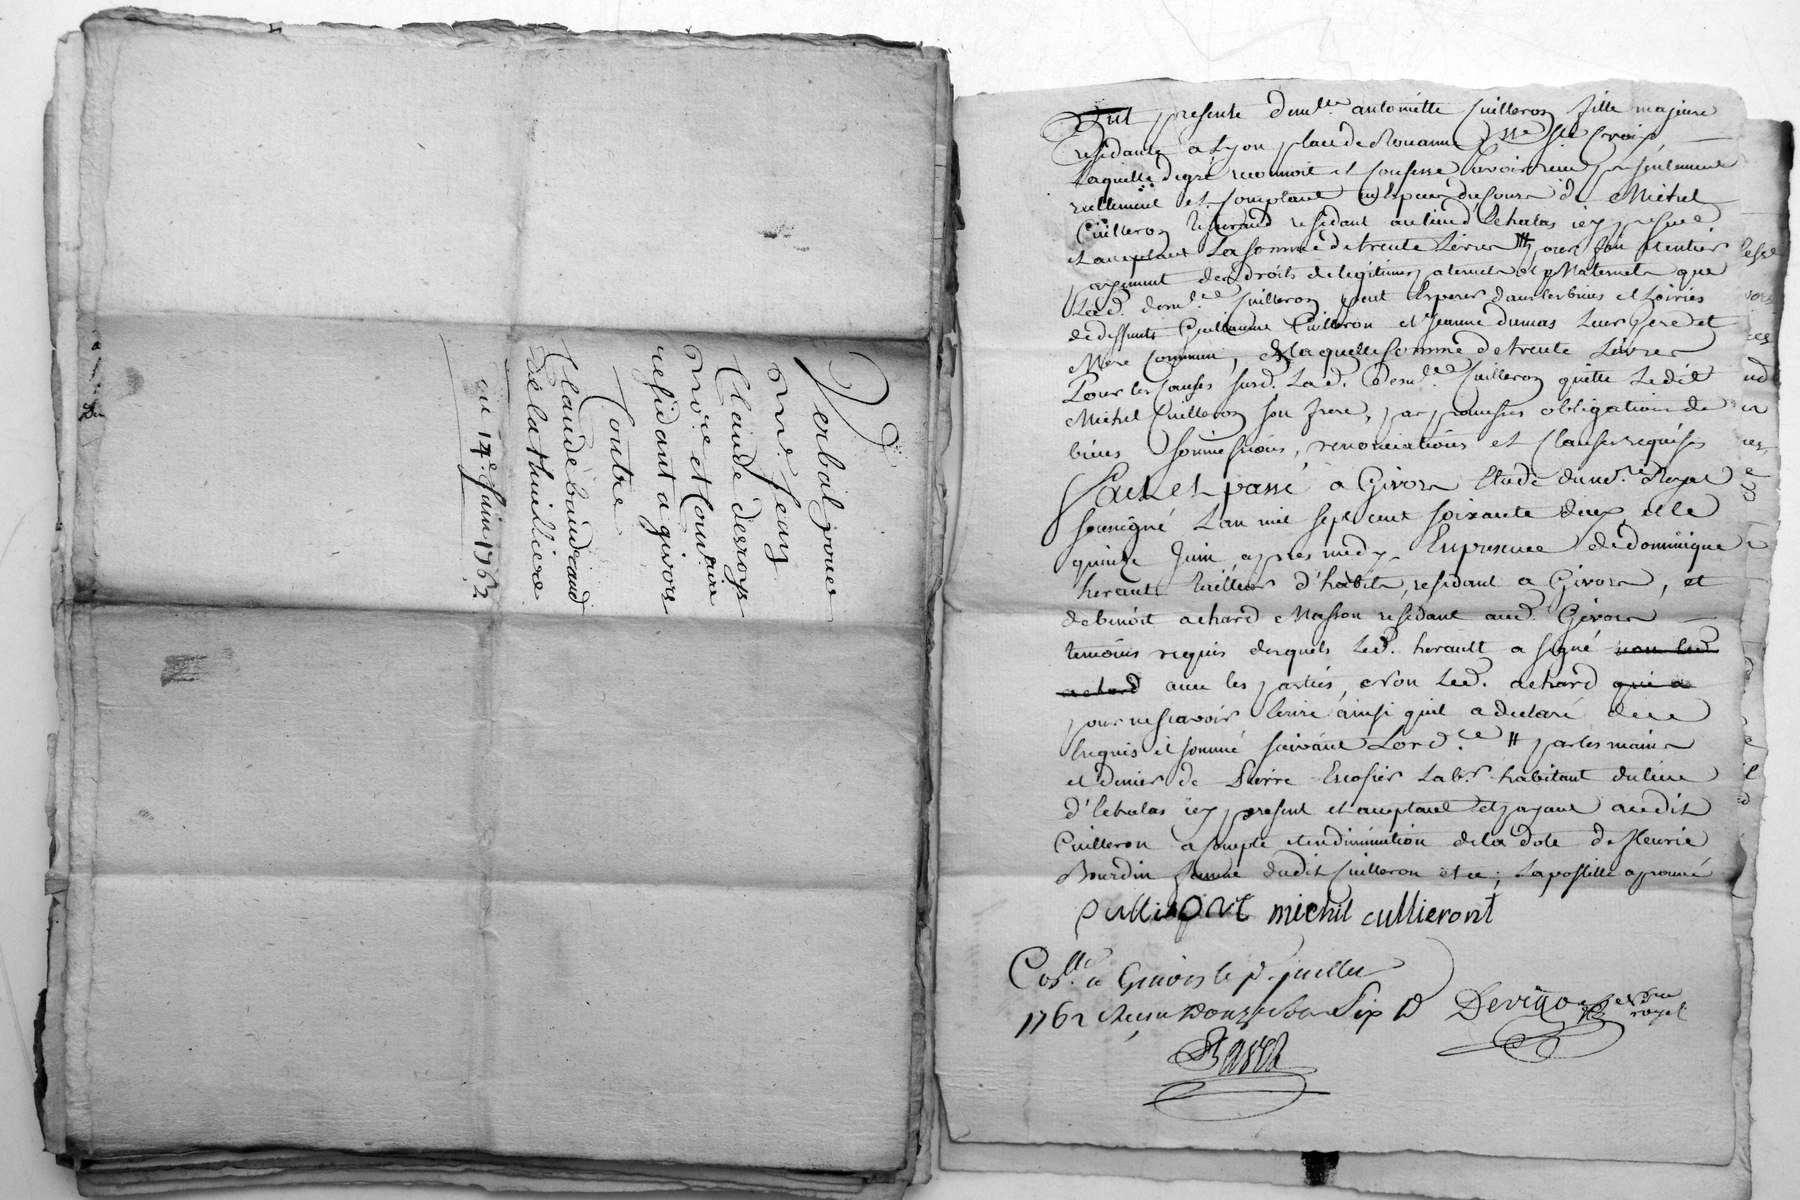 Verbal pour
Mre. Jean
Claude desroys
Nore. et Commre
residant a givors
Contre
Claude baudrand
de la thuilliere
du 14e. Juin 1762
Fut presente demlle. antoinette Cuilleron fille majeure
residante a Lyon place de Rouanne psse ste Croix
Laquelle degré reconnoit et confesse avoir reçu presentement
reellement et comptant en especes du cours de Michel
Cuilleron residant au lieu d'Echalas icy present
et acceptant La somme de trente Livres # pour son et entier
payement des droits de legitime paternels et Maternels que
Lad. demlle Cuilleron peut esperer dans les biens et hoiries
de deffunts Guillaume Cuilleron et Jeanne dumas Leur Pere et
Mere Commun, de laquelle somme de trente Livres
Pour les causes susd. La d. demlle. Cuilleron quitte Ledit
Michel Cuilleron son frere, par promesses obligations de
biens soumissions, renonciations et clauses requises
Fait et passé a Givors Etude du no.re Royal
soussigné L'an mil sept cent soixante deux et le
quinze Juin apres medy. En presence de dominique
herault tailleur d'habits, residant a Givors, et
de benoit achard Masson residant aud. Givors
temoins requis desquels Led. herault a signé non led
achard avec les parties, Non Led. achard qui a
pour ne scavoir Ecrire ainsi quil a declaré de ce
Enquis et sommé suivant Lord.ce # par les mains
et denier de Pierre Escofier Labr. habitant du lieu
d'Echalas icy present et acceptant et payant audit
Cuilleron a compte et en diminution de la dote de fleurie
Bourdin femme dudit Cuilleron et ce; Lapostille aprouvé
michil cullieront
Collé. a Givors le pr. juillet
1762 Reçu Douze sols Six D
Devigo no.re
royal